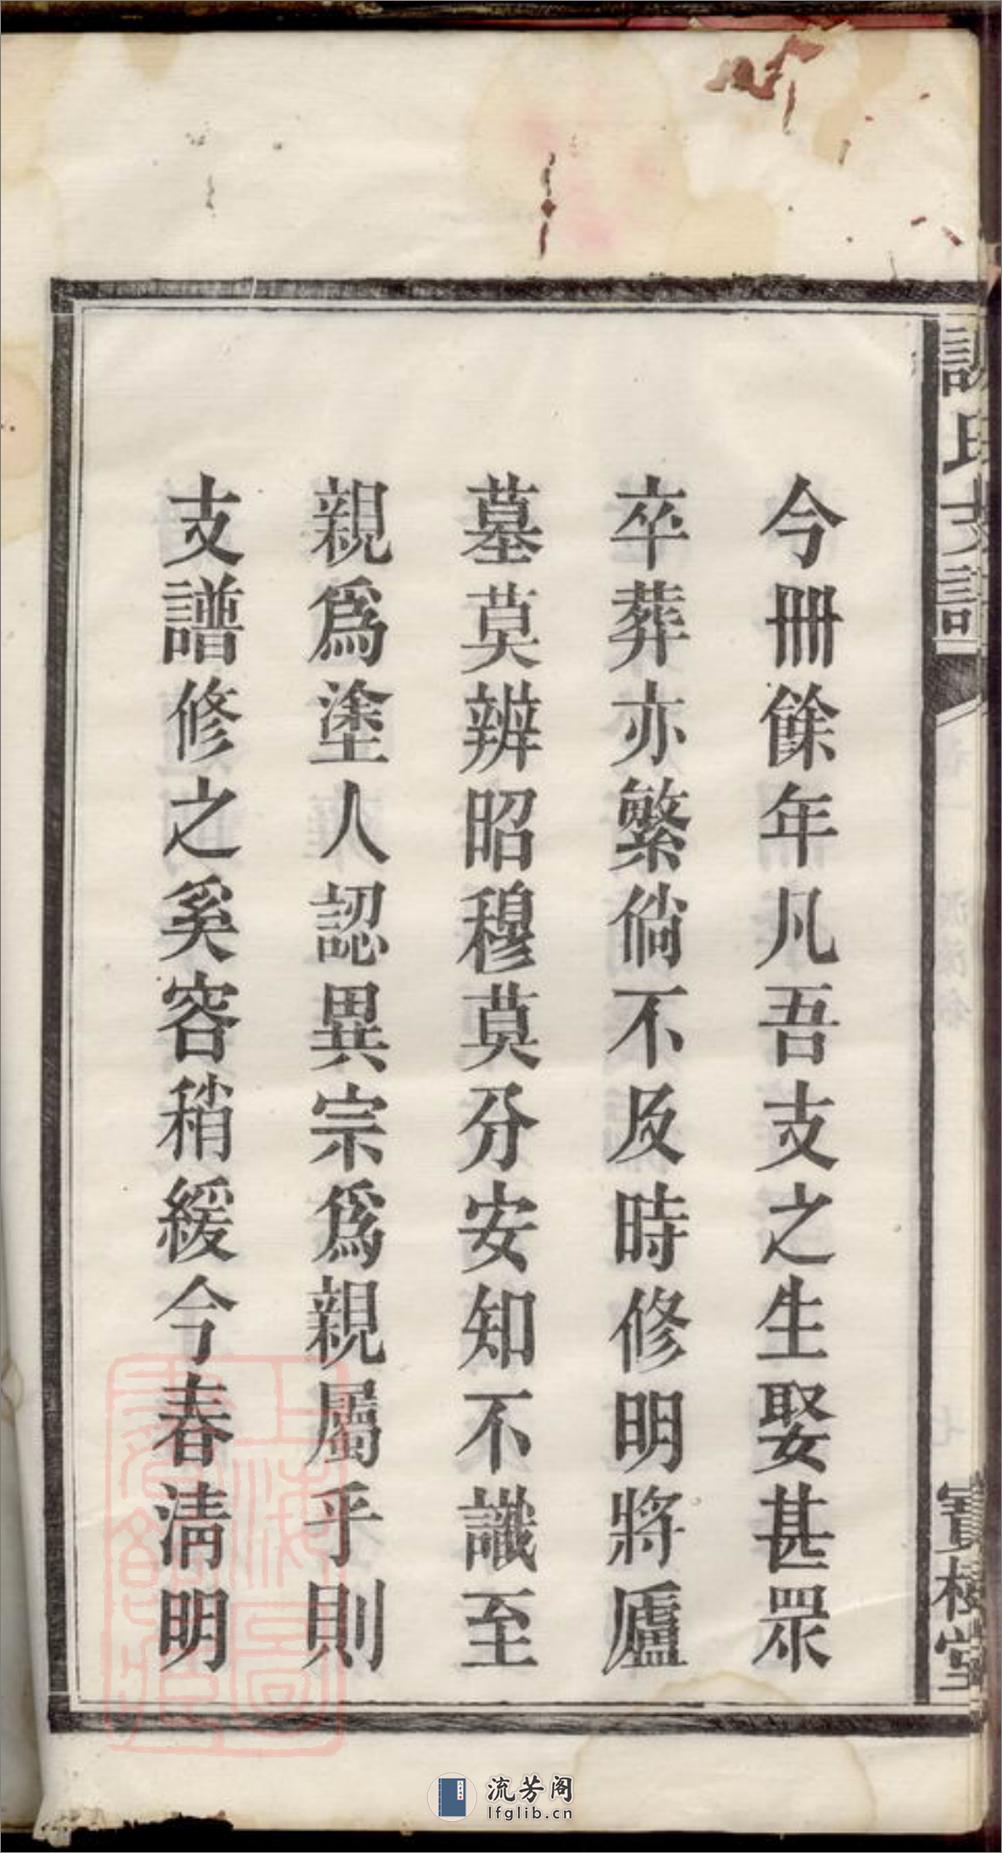 今冊餘年凡吾支之生娶甚眾
卒葬亦繁倘不及時修明將廬
墓莫辨昭穆莫分安知不識至
親為塗人認異宗為親屬乎則
支譜修之奚容稍緩今春淸明
氏支譜
寶樹堂
上海圖書館藏
流芳阁
lfglib.cn